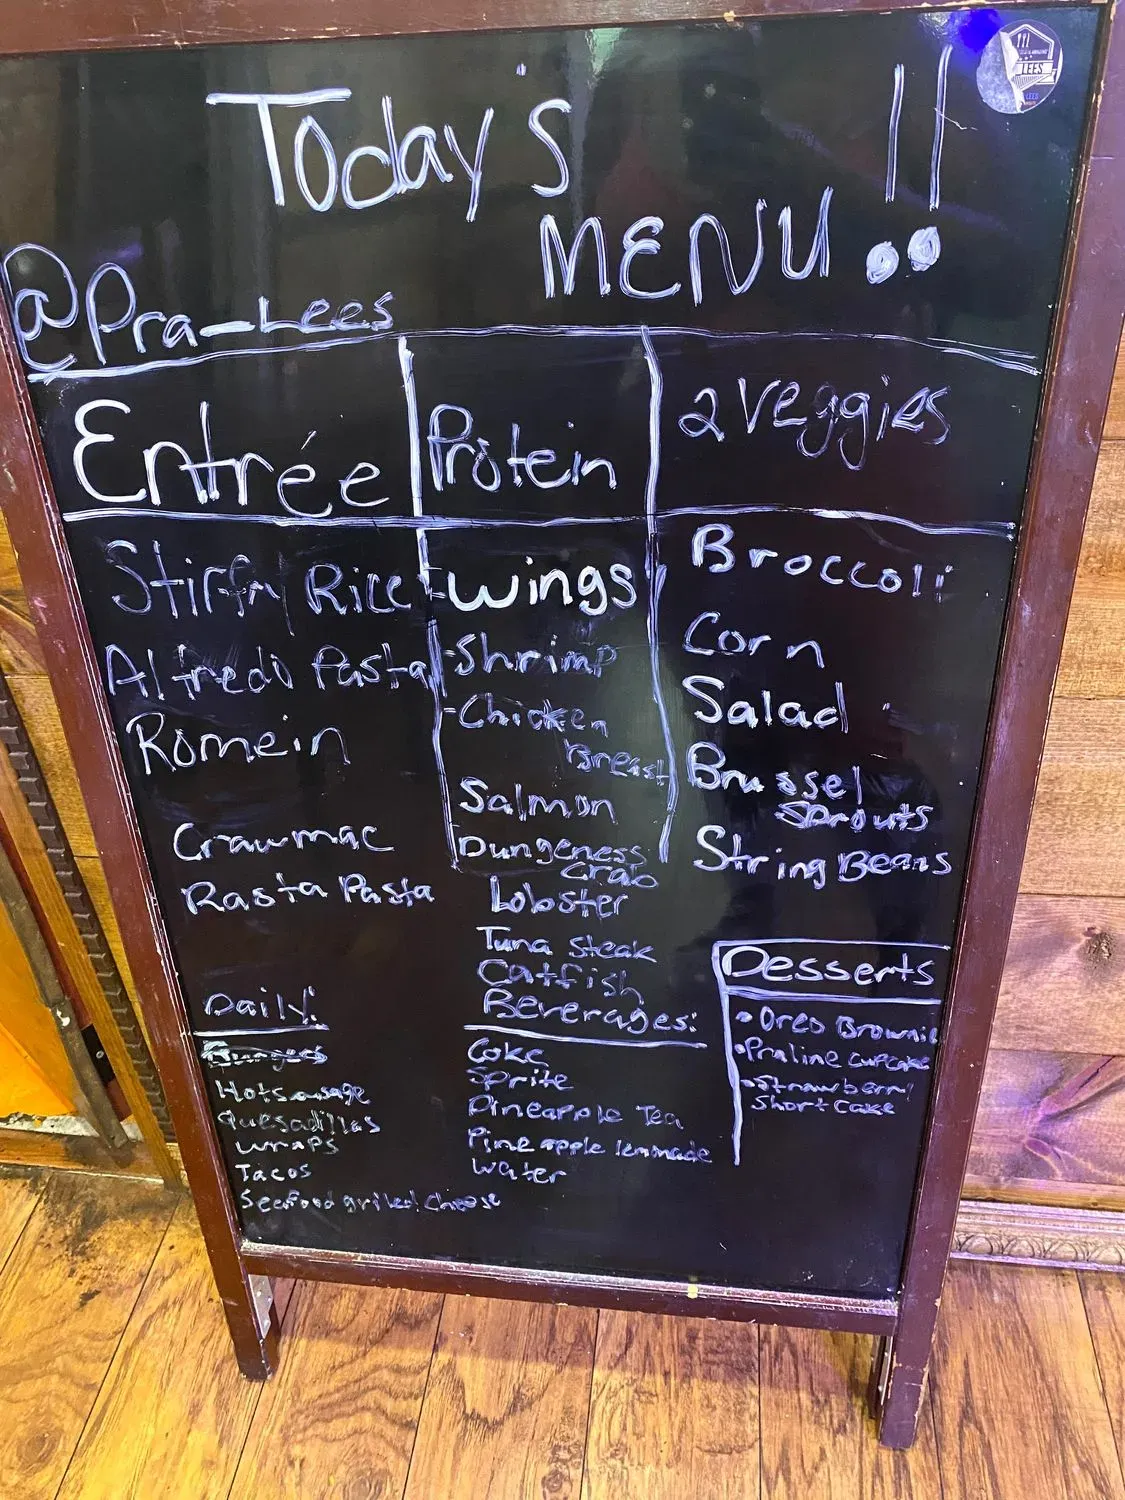 Today's
MENU!!
@Pra-Lees
LEES
Entrée
Stirfry Rice
Alfredo Pasta
Romein
Crawmac
Rasta Pasta
Protein
- Wings
- Shrimp
- Chicken
Breast
Salmon
Dungeness
Crab
Lobster
Tuna Steak
Catfish
2 Veggies
Broccoli
Corn
Salad
Brussel
Sprouts
String Beans
Daily:
Burgers
Hotsausage
Quesadillas
Wraps
Tacos
Seafood grilled Cheese
Beverages:
Coke
Sprite
Pineapple Tea
Pineapple lemonade
Water
Desserts
• Oreo Brownie
• Praline cupcake
• Strawberry
Shortcake